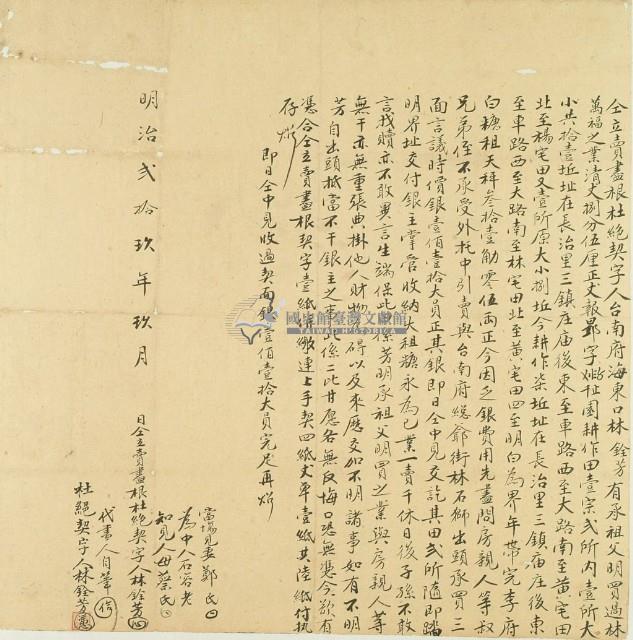 仝立賣盡根杜絕契字人台南府海東口林銓芳有承祖父明買過林
萬福之業清丈捌分伍厘正丈報字園耕作田壹宗弍所內壹所大
小共拾壹坵址在長治里三鎮庄庙後東至車路西至大路南至黃宅田
北至楊宅田又壹所原大小捌坵今耕作柒坵址在長治里三鎮庙庄後東
至車路西至大路南至林宅田北至黃宅田四至明白為界年帶完李府
白糖租天秤叁拾壹觔零伍兩正今因乏銀費用先盡問房親人等叔
兄弟侄不承受外托中引賣與台南府總爺街林石獅出頭承買三
面言議時價銀壹佰壹拾大員正其銀即日仝中見交訖其田弍所隨即踏
明界址交付銀主掌管收納大租糖永為己業一賣千休日後子孫不敢
言找贖亦不敢異言生端保此係芳明承祖父明買之業與房親人等
無干亦無重張典掛他人財物為碍以及來歷交加不明諸事如有不明
芳自出頭抵當不干銀主之事此係二比甘愿各無反悔口恐無憑今欲有
憑合仝立賣盡根契字壹紙併繳連上手契四紙丈單壹紙共陸紙付執
存炤
即日仝中見收過契面銀壹佰壹拾大員完足再炤
明治弍拾玖年玖月
日仝立賣盡根杜絕契字人林銓芳
當場見妻鄭氏
為中人石容老
知見人母蔡氏
代書人自筆
杜絕契字人林銓芳
國史館臺灣文獻館
TAIWAN HISTORICA